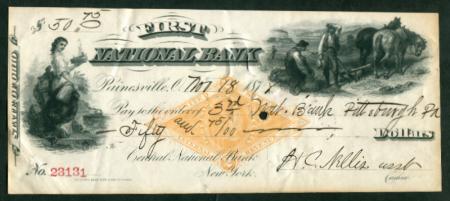 $50.75
FIRST
NATIONAL BANK
Painesville, O. Nov 18 187
Pay to the order of 3rd Nat. Bank Pittsburgh Pa
Fifty and 75/100 Dollars
Central National Bank
New York.
H.C. Nellis asst
No. 23131